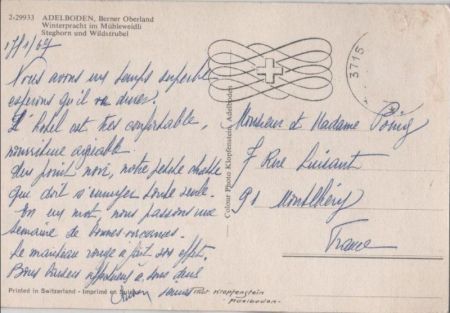 2-29933 ADELBODEN, Berner Oberland
Winterpracht im Mühleweidli
Steghorn und Wildstrubel
17/1/67
Nous avons un temps superbe
espérons qu'il va durer.
L'hôtel est très confortable,
nourriture agréable.
Un point noir, notre petite chatte
qui doit s'ennuyer toute seule.
En un mot, nous passons une
semaine de bonnes vacances.
Le manteau rouge a fait son effet,
Bons baisers affectueux à vous deux
Printed in Switzerland - Imprimé en Suisse
Klopfenstein
Adelboden
Colour Photo Klopfenstein, Adelboden
3715
Monsieur et Madame
7 Rue Luisant
91 Montlhéry
France